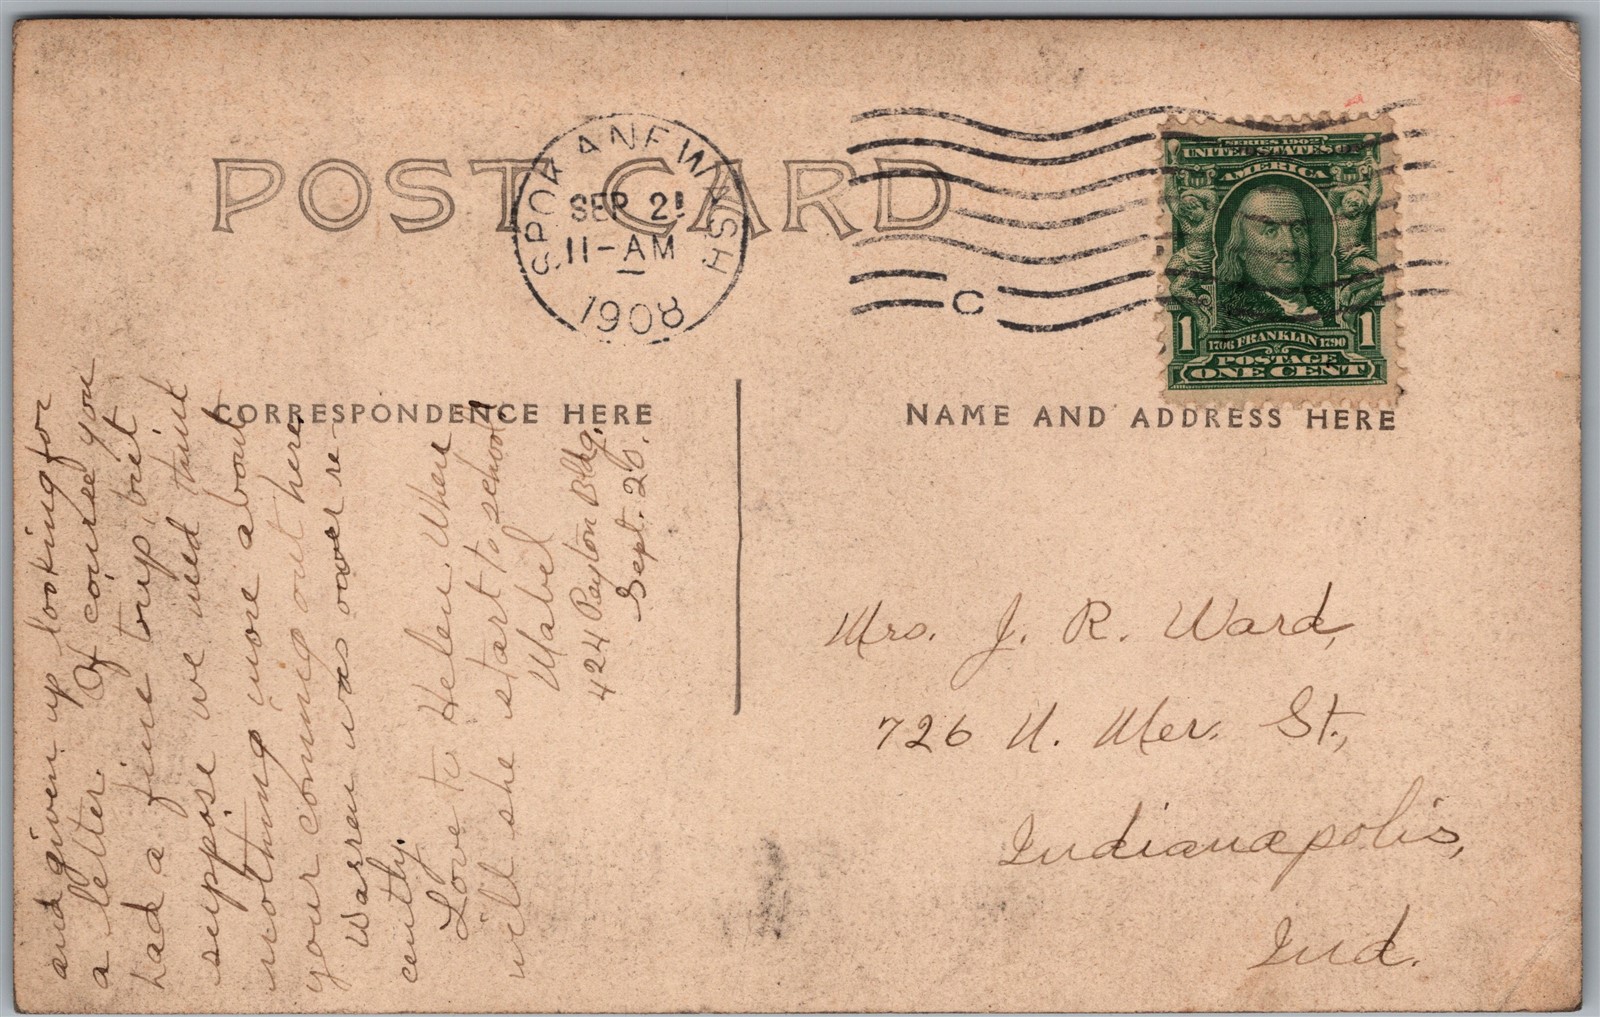 POST CARD
SPOKANE WASH
SEP 21
11-AM
1908
C
SERIES 1902
UNITED STATES OF
AMERICA
1 1706 FRANKLIN 1790 1
POSTAGE
ONE CENT
CORRESPONDENCE HERE
NAME AND ADDRESS HERE
and given up looking for
a letter. Of course you
had a fine trip, but
suppose we need think
nothing more about
your coming out here.
Warren was over re-
cently.
Love to Helen. When
will she start to school
Mabel
424 Peyton Bldg.
Sept. 20.
Mrs. J. R. Ward,
726 N. Mer. St.,
Indianapolis,
Ind.